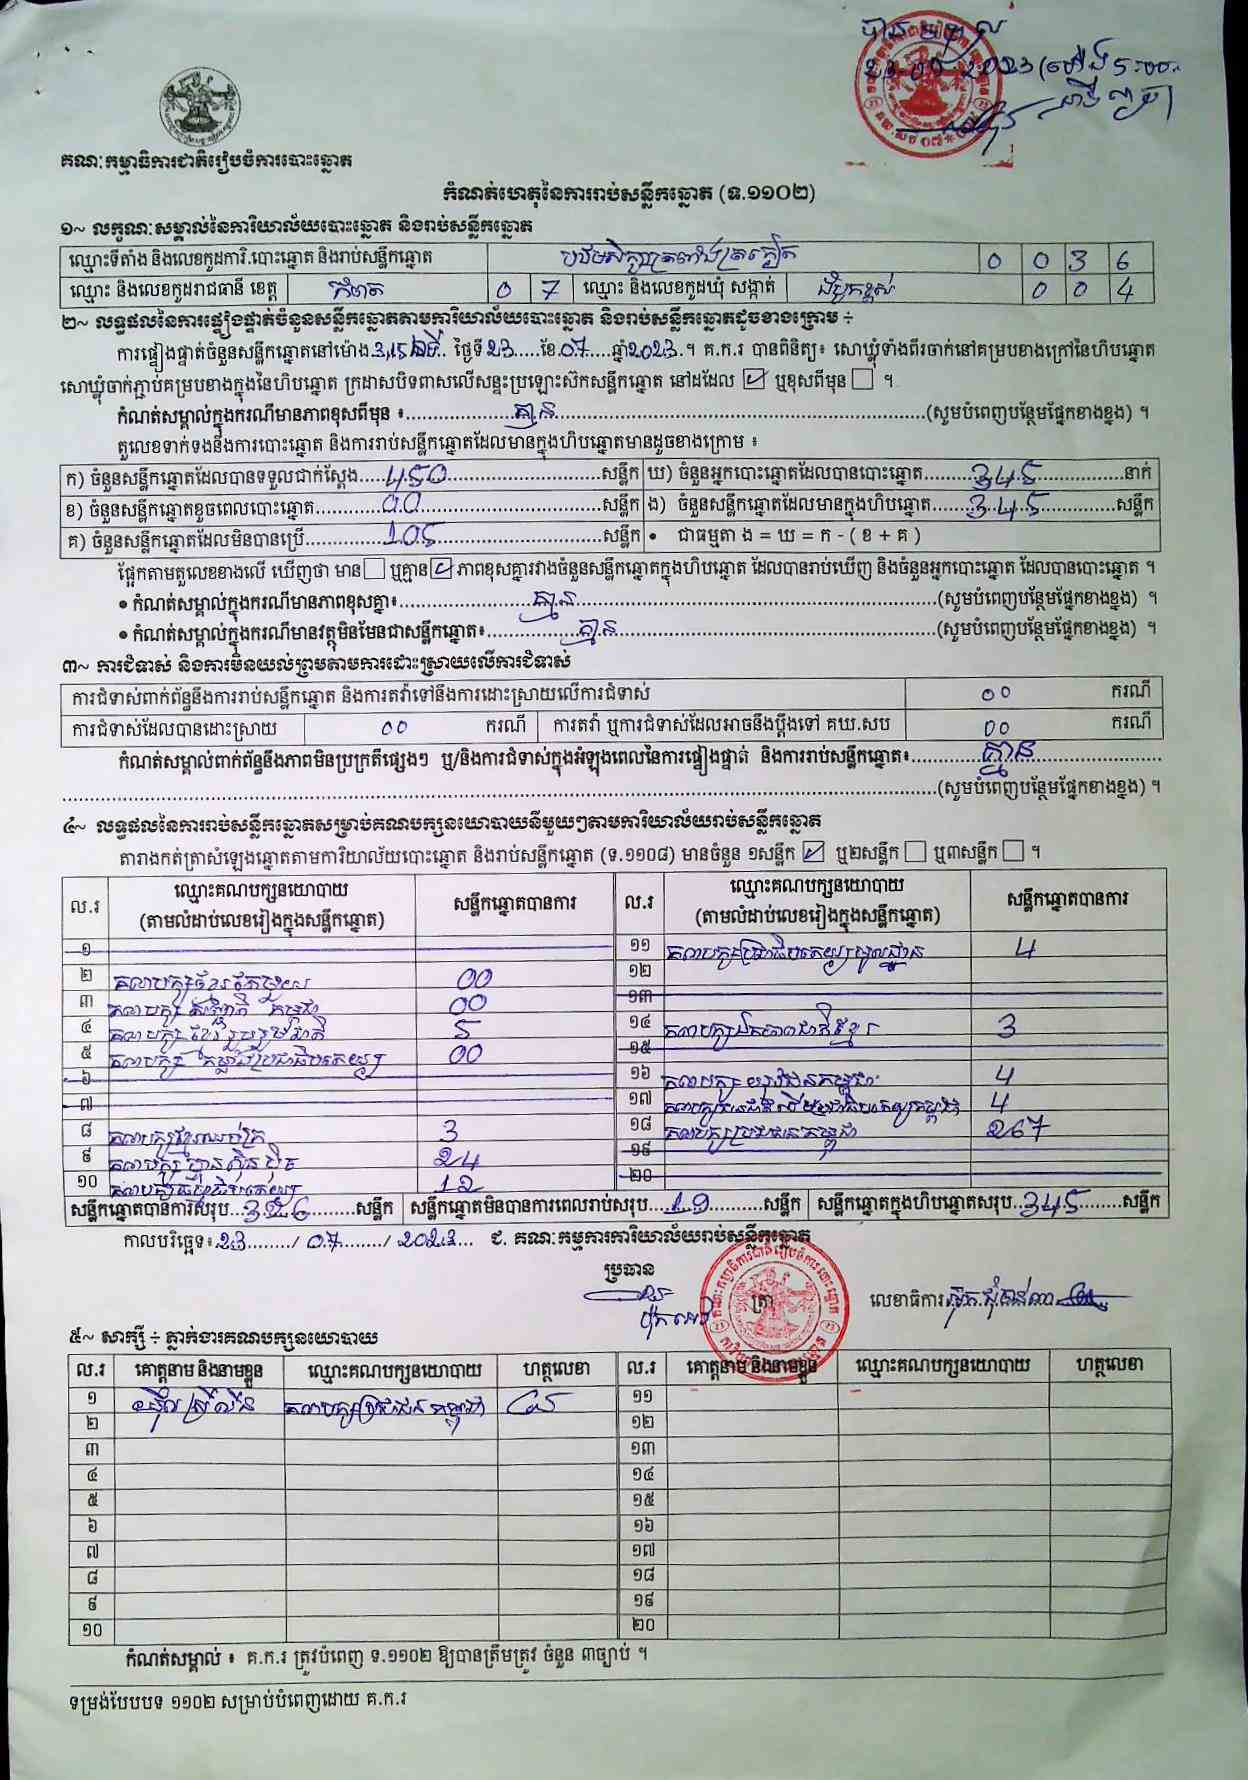 បានទទួល
23.07.2023 (ម៉ោង 5:00
គណៈកម្មាធិការជាតិរៀបចំការបោះឆ្នោត
កំណត់ហេតុនៃការរាប់សន្លឹកឆ្នោត (ទ.១១០២)
១~ លក្ខណៈសម្គាល់នៃការិយាល័យបោះឆ្នោត និងរាប់សន្លឹកឆ្នោត
ឈ្មោះទីតាំង និងលេខកូដការិ.បោះឆ្នោត និងរាប់សន្លឹកឆ្នោត 0 0 3 6
ឈ្មោះ និងលេខកូដរាជធានី ខេត្ត កំពត 0 7 ឈ្មោះ និងលេខកូដឃុំ សង្កាត់ 0 0 4
២~ លទ្ធផលនៃការផ្ទៀងផ្ទាត់ចំនួនសន្លឹកឆ្នោតតាមការិយាល័យបោះឆ្នោត និងរាប់សន្លឹកឆ្នោតដូចខាងក្រោម ÷
ការផ្ទៀងផ្ទាត់ចំនួនសន្លឹកឆ្នោតនៅម៉ោង 3,15 នាទី ថ្ងៃទី 23 ខែ 07 ឆ្នាំ 2023 ។ គ.ក.រ បានពិនិត្យ៖ សោឃ្លុំទាំងពីរចាក់នៅគម្របខាងក្រៅនៃហិបឆ្នោត
សោឃ្លុំចាក់ភ្ជាប់គម្របខាងក្នុងនៃហិបឆ្នោត ក្រដាសបិទពាសលើសន្ទះប្រឡោះស៊កសន្លឹកឆ្នោត នៅដដែល ☑ ឬខុសពីមុន ☐ ។
កំណត់សម្គាល់ក្នុងករណីមានភាពខុសពីមុន ៖ គ្មាន (សូមបំពេញបន្ថែមផ្នែកខាងខ្នង) ។
តួលេខទាក់ទងនឹងការបោះឆ្នោត និងការរាប់សន្លឹកឆ្នោតដែលមានក្នុងហិបឆ្នោតមានដូចខាងក្រោម ៖
ក) ចំនួនសន្លឹកឆ្នោតដែលបានទទួលជាក់ស្តែង 450 សន្លឹក ឃ) ចំនួនអ្នកបោះឆ្នោតដែលបានបោះឆ្នោត 345 នាក់
ខ) ចំនួនសន្លឹកឆ្នោតខូចពេលបោះឆ្នោត 00 សន្លឹក ង) ចំនួនសន្លឹកឆ្នោតដែលមានក្នុងហិបឆ្នោត 345 សន្លឹក
គ) ចំនួនសន្លឹកឆ្នោតដែលមិនបានប្រើ 105 សន្លឹក • ជាធម្មតា ង = ឃ = ក - ( ខ + គ )
ផ្អែកតាមតួលេខខាងលើ ឃើញថា មាន ☐ ឬគ្មាន ☑ ភាពខុសគ្នារវាងចំនួនសន្លឹកឆ្នោតក្នុងហិបឆ្នោត ដែលបានរាប់ឃើញ និងចំនួនអ្នកបោះឆ្នោត ដែលបានបោះឆ្នោត ។
• កំណត់សម្គាល់ក្នុងករណីមានភាពខុសគ្នា៖ គ្មាន (សូមបំពេញបន្ថែមផ្នែកខាងខ្នង) ។
• កំណត់សម្គាល់ក្នុងករណីមានវត្ថុមិនមែនជាសន្លឹកឆ្នោត៖ គ្មាន (សូមបំពេញបន្ថែមផ្នែកខាងខ្នង) ។
៣~ ការជំទាស់ និងការមិនយល់ព្រមតាមការដោះស្រាយលើការជំទាស់
ការជំទាស់ពាក់ព័ន្ធនឹងការរាប់សន្លឹកឆ្នោត និងការតវ៉ាទៅនឹងការដោះស្រាយលើការជំទាស់ 00 ករណី
ការជំទាស់ដែលបានដោះស្រាយ 00 ករណី ការតវ៉ា ឬការជំទាស់ដែលអាចនឹងប្តឹងទៅ គឃ.សប 00 ករណី
កំណត់សម្គាល់ពាក់ព័ន្ធនឹងភាពមិនប្រក្រតីផ្សេងៗ ឬ/និងការជំទាស់ក្នុងអំឡុងពេលនៃការផ្ទៀងផ្ទាត់ និងការរាប់សន្លឹកឆ្នោត៖ គ្មាន
(សូមបំពេញបន្ថែមផ្នែកខាងខ្នង) ។
៤~ លទ្ធផលនៃការរាប់សន្លឹកឆ្នោតសម្រាប់គណបក្សនយោបាយនីមួយៗតាមការិយាល័យរាប់សន្លឹកឆ្នោត
តារាងកត់ត្រាសំឡេងឆ្នោតតាមការិយាល័យបោះឆ្នោត និងរាប់សន្លឹកឆ្នោត (ទ.១១០៨) មានចំនួន ១សន្លឹក ☑ ឬ២សន្លឹក ☐ ឬ៣សន្លឹក ☐ ។
ល.រ ឈ្មោះគណបក្សនយោបាយ (តាមលំដាប់លេខរៀងក្នុងសន្លឹកឆ្នោត) សន្លឹកឆ្នោតបានការ ល.រ ឈ្មោះគណបក្សនយោបាយ (តាមលំដាប់លេខរៀងក្នុងសន្លឹកឆ្នោត) សន្លឹកឆ្នោតបានការ
១ ១១ គណបក្សប្រជាធិបតេយ្យមូលដ្ឋាន 4
២ 00 ១២
៣ 00 ១៣
៤ គណបក្សខ្មែររួបរួមជាតិ 5 ១៤ គណបក្សឯកភាពជាតិខ្មែរ 3
៥ គណបក្សកម្លាំងប្រជាធិបតេយ្យ 00 ១៥
៦ ១៦ គណបក្សយុវជនកម្ពុជា 4
៧ ១៧ 4
៨ 3 ១៨ គណបក្សប្រជាជនកម្ពុជា 267
៩ គណបក្សហ៊្វុនស៊ិនប៉ិច 24 ១៩
១០ គណបក្សធម្មាធិបតេយ្យ 12 ២០
សន្លឹកឆ្នោតបានការសរុប 326 សន្លឹក សន្លឹកឆ្នោតមិនបានការពេលរាប់សរុប 19 សន្លឹក សន្លឹកឆ្នោតក្នុងហិបឆ្នោតសរុប 345 សន្លឹក
កាលបរិច្ឆេទ៖ 23 / 07 / 2023 ជ. គណៈកម្មការការិយាល័យរាប់សន្លឹកឆ្នោត
ប្រធាន ត្រា លេខាធិការ
៥~ សាក្សី ÷ ភ្នាក់ងារគណបក្សនយោបាយ
ល.រ គោត្តនាម និងនាមខ្លួន ឈ្មោះគណបក្សនយោបាយ ហត្ថលេខា ល.រ គោត្តនាម និងនាមខ្លួន ឈ្មោះគណបក្សនយោបាយ ហត្ថលេខា
១ គណបក្សប្រជាជនកម្ពុជា ១១
២ ១២
៣ ១៣
៤ ១៤
៥ ១៥
៦ ១៦
៧ ១៧
៨ ១៨
៩ ១៩
១០ ២០
កំណត់សម្គាល់ ៖ គ.ក.រ ត្រូវបំពេញ ទ.១១០២ ឱ្យបានត្រឹមត្រូវ ចំនួន ៣ច្បាប់ ។
ទម្រង់បែបបទ ១១០២ សម្រាប់បំពេញដោយ គ.ក.រ